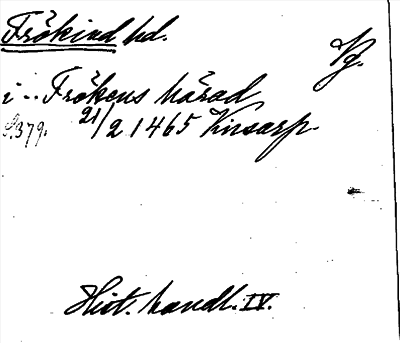 Frökind hd.
Vg.
i .. Frökens härad
S.379. 21/2 1465 Kinsarp.
Hist. handl. IV.